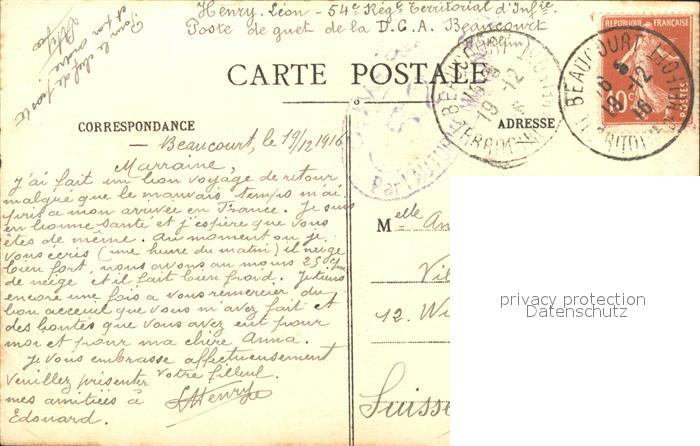 Henry Léon - 54e Régt Territorial d'Infie
Poste de guet de la D.C.A Beaucourt
Pour le chef de poste
et par ordre
CARTE POSTALE
CORRESPONDANCE
ADRESSE
REPUBLIQUE FRANÇAISE
10c
POSTES
BEAUCOURT
19-12
16
BEAUCOURT
19-12
16
Beaucourt, le 19/12 1916
Marraine,
J'ai fait un bon voyage de retour
malgué que le mauvais temps m'ai
pris a mon arrivée en France. Je suis
en bonne santé et j'espère que vous
êtes de même. Au moment ou je
vous ecris (une heure du matin) il neige
bien fort, nous avons au moins 25 cm
de neige et il fait bien froid. Je tiens
encore une fois a vous remercier du
bon acceuil que vous m'avez fait et
des bontés que vous avez eut pour
moi et pour ma chère Anna.
Je vous embrasse affectueusement
Veuillez présenter votre filleul.
mes amitiées à LHenry
Edouard.
Melle An
Vil
12. Wi
Suisse
privacy protection
Datenschutz